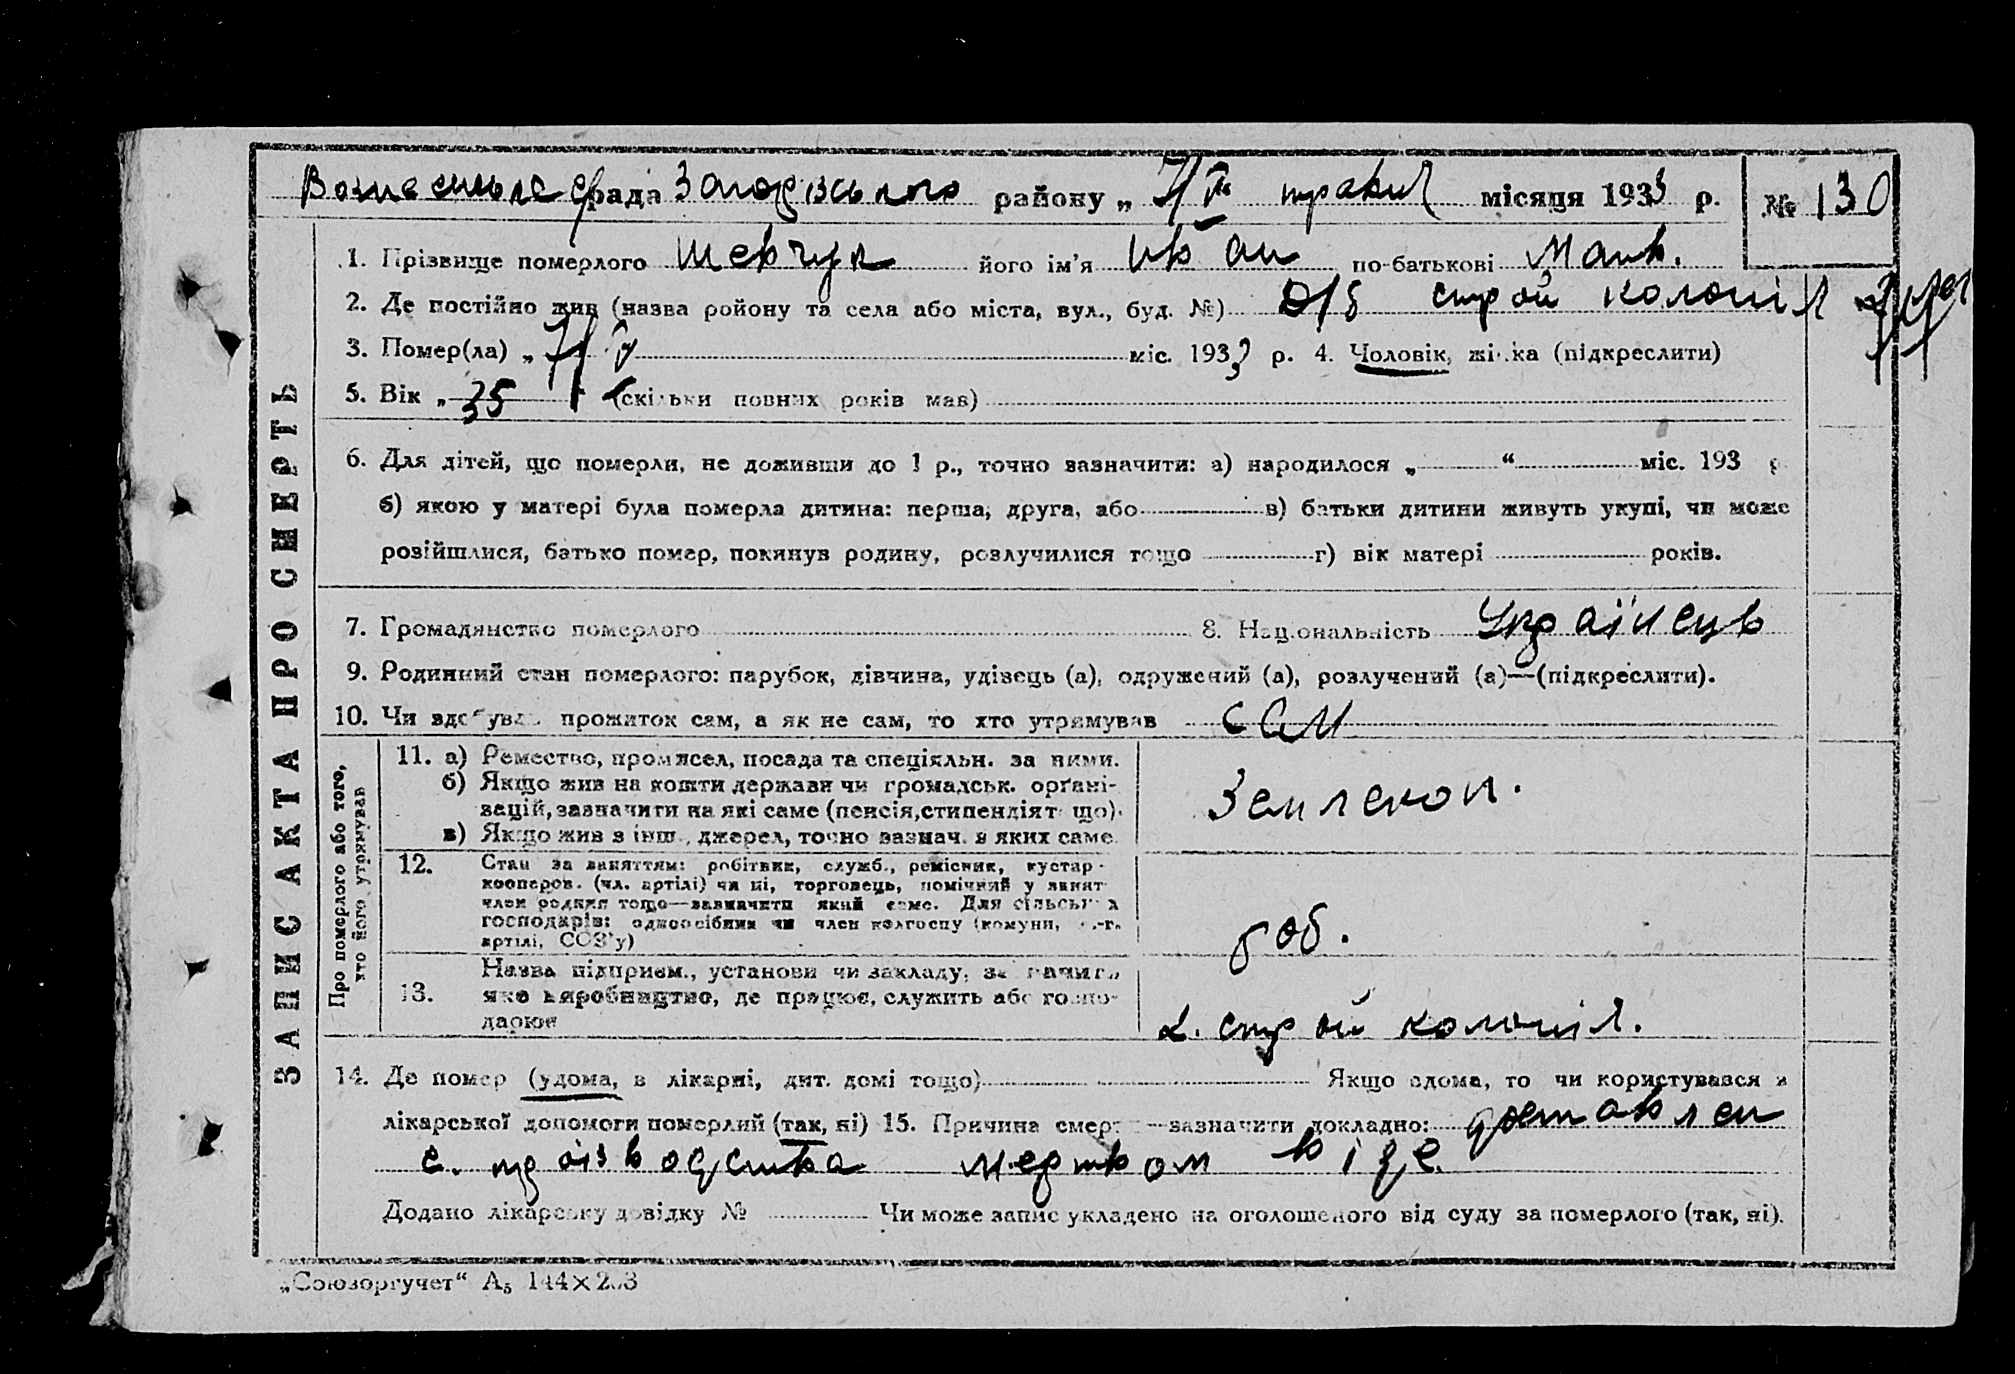 Вознесеньке с/рада Запорізського району „ 7/V травня місяця 1933 р. № 130
1. Прізвище померлого Шевчук його ім'я Иван по-батькові Матв.
2. Де постійно жив (назва ройону та села або міста, вул., буд. №) строй колонія
3. Помер(ла) „ 7/V міс. 1933 р. 4. Чоловік, жінка (підкреслити)
5. Вік „ 35 (скільки повних років мав)
6. Для дітей, що померли, не доживши до 1 р., точно зазначити: а) народилося „ “ міс. 193 р.
б) якою у матері була померла дитина: перша, друга, або в) батьки дитини живуть укупі, чи може
розійшлися, батько помер, покинув родину, розлучилися тощо г) вік матері років.
7. Громадянство померлого 8. Національність Українець
9. Родинний стан померлого: парубок, дівчина, удівець (а), одружений (а), розлучений (а)—(підкреслити).
10. Чи здобував прожиток сам, а як не сам, то хто утримував сам
ЗАПИС АКТА ПРО СМЕРТЬ
Про померлого або того,
хто його утримував
11. а) Ремество, промисел, посада та спеціяльн. за ними.
б) Якщо жив на кошти держави чи громадськ. органі-
зацій, зазначити на які саме (пенсія, стипендія т що).
в) Якщо жив з інш., джерел, точно зазнач. з яких саме.
Землекоп.
12. Стан за заняттям: робітник, служб., ремісник, кустар-
кооперов. (чл. артілі) чи ні, торговець, помічний у занят
член родини тощо—зазначити який саме. Для сільськ х
господарів: одноосібник чи член колгоспу (комуни, с.-г.
артілі, СОЗ'у)
роб.
13. Назва підприєм., установи чи закладу, зазначить
яке виробництво, де працює, служить або госпо-
дарює
строй колонія.
14. Де помер (удома, в лікарні, дит. домі тощо) Якщо вдома, то чи користувався з
лікарської допомоги померлий (так, ні) 15. Причина смерти—зазначити докладно: доставлен
с. проізводства мертвом віде.
Додано лікарську довідку № Чи може запис укладено на оголошеного від суду за померлого (так, ні).
„Союзоргучет“ А₅ 144×203